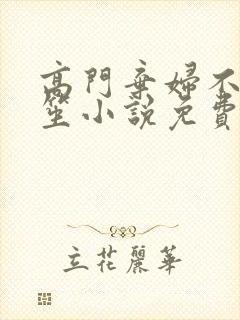 高門棄婦不
笙小說免費
立花麗華